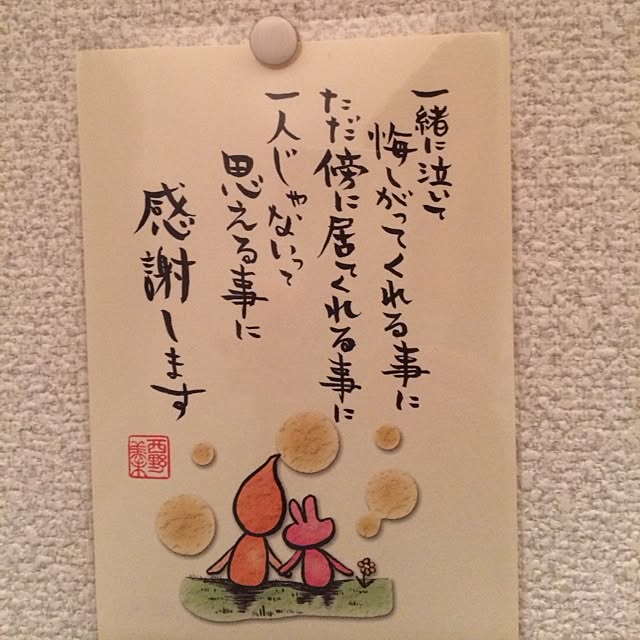 一緒に泣いて
悔しがってくれる事に
ただ傍に居てくれる事に
一人じゃないって
思える事に
感謝します
西野